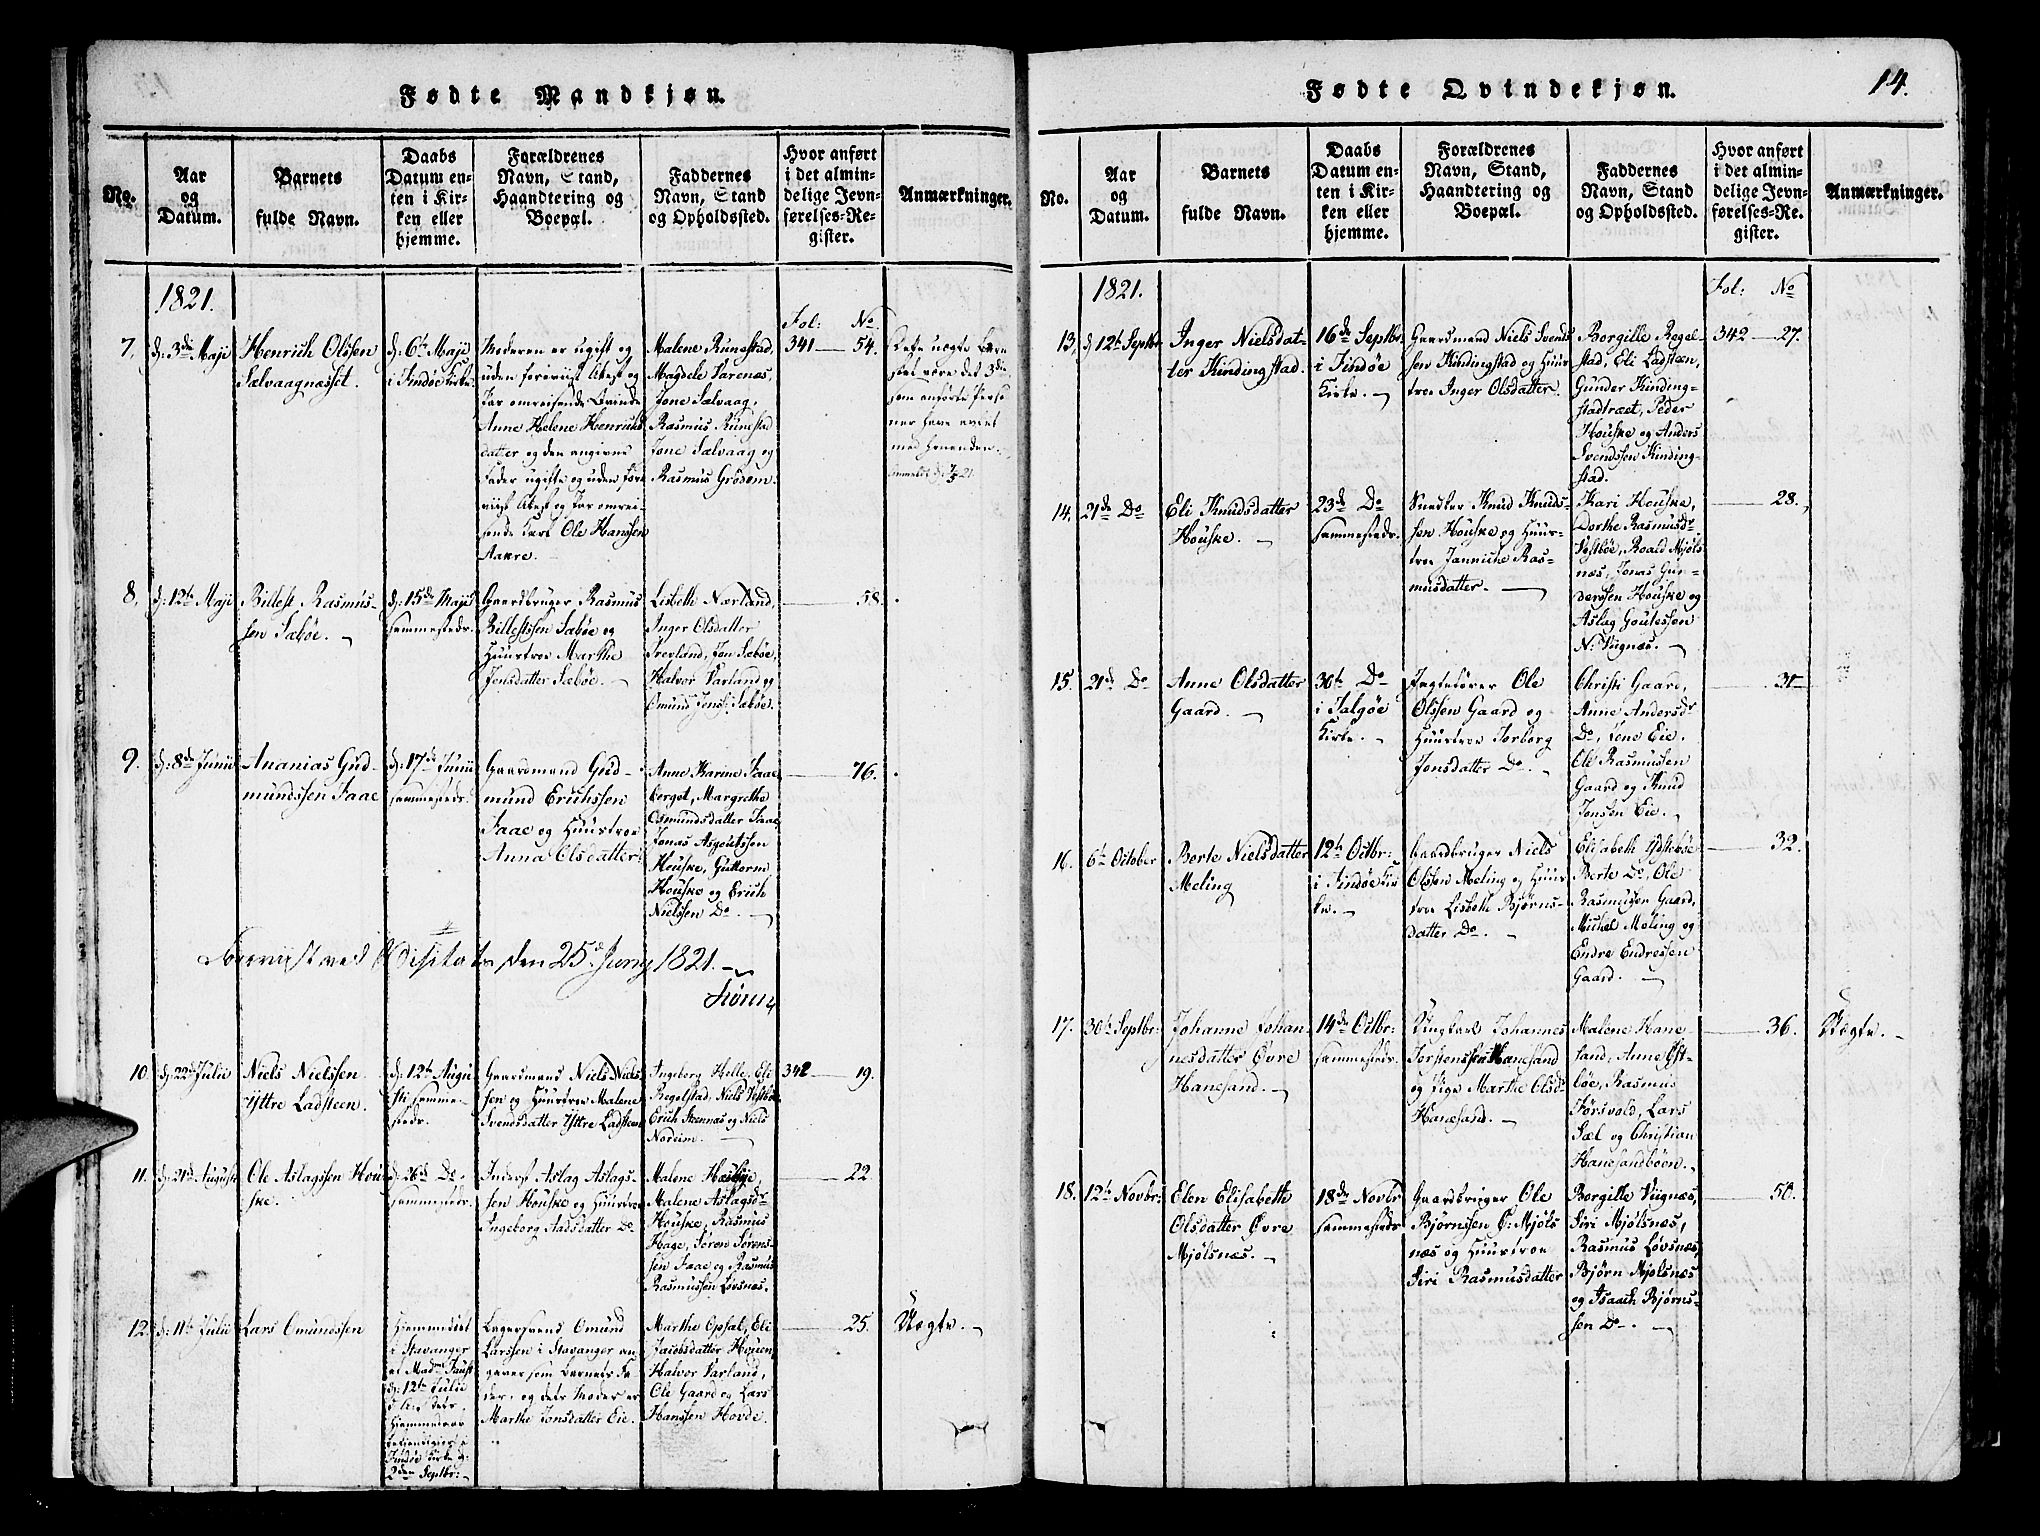 Fødte Mandkjøn.
No.
Aar
og
Datum.
Barnets
fulde Navn.
Daabs
Datum en-
ten i Kir-
ken eller
hjemme.
Forældrenes
Navn, Stand,
Haandtering og
Boepæl.
Faddernes
Navn, Stand
og Opholdssted.
Hvor anført
i det almin-
delige Jevn-
førelses-Re-
gister.
Anmærkninger.
1821.
Fol: No.
7.
d: 3de Maji
Henrich Olssen
Sælvaagnæsset.
d: 6te Maji
i Findøe Kirke.
Moderen er ugift og
uden foreviist Attest og
Anne Helene Henrichs
datter og den angivne
Fader ugifte og uden fore
viist Attest og
Ole Hanssen
Aakre.
Malene Runestad,
Magdele Varenæs,
Jone Sælvaag,
Rasmus Runestad
Jone Sælvaag og
Rasmus Grødem.
341 54.
8.
d: 12te Maji
Billest Rasmus-
sen Sæbøe.
d: 15de Maji
sammesteds.
Gaardbruger Rasmus
Billestssen Sæbøe og
Huustroe Marthe
Jonsdatter Sæbøe.
Lisbeth Nærland,
Inger Olsdatter
Jon Sæbøe,
Halvor Varland og
Omund Jonss: Sæbøe.
58.
9.
d: 8de Junii
Ananias Gud-
mundssen Faae
d: 17de Junii
sammesteds.
Gaardmand Gud-
mund Erichssen
Faae og Huustroe
Anna Olsdatter
Anne Karine Faae
berget, Margrethe
Osmundsdatter Faae,
Jonas Asgoutssen
Houske, Guttorm
Houske og Erich
Nielssen Do.
76.
Foreviist ved Visitats den 25de Juny 1821.
10.
d: 22de Julii
Niels Nielssen
Yttre Ladsteen.
d: 12te Augu
sti samme-
steds.
Gaardmand Niels Niels
sen og Huustroe Malene
Svendsdatter Yttre Ladsteen
Ingeborg Helle, Eli
Regelstad, Niels Vestbøe
Erich Steennæs og Niels
Nordeim.
342 19.
11.
d: 21de August
Ole Aslagssen Hou
ske.
d: 26de Do
sammesteds.
Inderst Aslag Aslags-
sen Houske og Huustroe
Ingeborg Aadsdatter Do
Malene Haskye,
Malene Aslagsdr
Houske, Rasmus
Hage, Søren Sørens-
sen Faae og Rasmus
Rasmussen Løvsnæs.
22.
12.
d: 11te Julii
Lars Omundssen
Hjemmedøbt
i Stavanger
af Madme Faust
d: 12te Julii
Findøe Kirke d:
2den Septbr:
Omund
Larssen i Stavanger an-
giver som Barnets Fa-
der, og dets Moder er
Marthe Jonsdatter Eie.
Marthe Opsal, Eli
Jacobsdatter Houen,
Halvor Varland,
Ole Gaard og Lars
Hanssen Hovde.
25.
Uægte.
Fødte Qvindekjøn.
14.
No.
Aar
og
Datum.
Barnets
fulde Navn.
Daabs
Datum en-
ten i Kir-
ken eller
hjemme.
Forældrenes
Navn, Stand,
Haandtering og
Boepæl.
Faddernes
Navn, Stand
og Opholdssted.
Hvor anført
i det almin-
delige Jevn-
førelses-Re-
gister.
Anmærkninger.
1821.
Fol: No
13.
d: 12te Septbr
Inger Nielsdat-
ter Kindingstad.
16de Septbr.
i Findøe
Kirke.
Gaardmand Niels Svends
sen Kindingstad og Huus
troe Inger Olsdatter.
Borgille Regel-
stad, Eli Ladsteen,
Gunder Kinding-
stadtræet, Peder
Houske og Anders
Svendssen Kinding-
stad.
342 27.
14.
21de Do
Eli Knudsdatter
Houske.
23de Do
sammesteds.
Snedker Knud Knuds-
sen Houske og Huus-
troe Janniche Ras-
musdatter.
Kari Houske,
Dorthe Rasmusdr
Vestbøe, Roald Mjøls
næs, Jonas Gun-
derssen Houske og
Aslag Goutessen
N: Viignæs.
28.
15.
21de Do
Anne Olsdatter
Gaard.
30te Do
i Talgøe
Kirke.
Jagtefører Ole
Olssen Gaard og
Huustroe Torborg
Jonsdatter Do.
Christi Gaard,
Anne Andersdr
Do, Lene Eie,
Ole Rasmussen
Gaard og Knud
Jonsen Eie.
31
16.
6te October
Berte Nielsdatter
Meling
12te Octbr:
i Findøe Kir
ke.
Gaardbruger Niels
Olssen Meling og Huus
troe Lisbeth Bjørns-
datter Do.
Elisabeth Ydstebøe
Berte Do, Ole
Rasmussen Gaard,
Michel Meling og
Endre Endressen
Gaard.
32.
17.
30te Septbr:
Johanne Johan-
nesdatter Øvre
Hanesand.
14de Octbr:
sammesteds.
Ungkarl Johannes
Torstenssen Hanesand
og Pige Marthe Olsdr
Hanesand.
Malene Hane
sand, Anne Øst-
bøe, Rasmus
Førsvold, Lars
Sæl og Christian
Hanesandbøen.
36.
Uægte.
18.
12te Novbr:
Elen Elisabeth
Olsdatter Øvre
Mjølsnæs.
18de Novbr
sammesteds
Gaardbruger Ole
Bjørnssen Ø: Mjøls
næs og Huustroe
Siri Rasmusdatter
Borgille Viignæs,
Siri Mjølsnæs,
Rasmus Løvsnæs,
Bjørn Mjølsnæs
og Isaach Bjørns-
sen Do.
50.